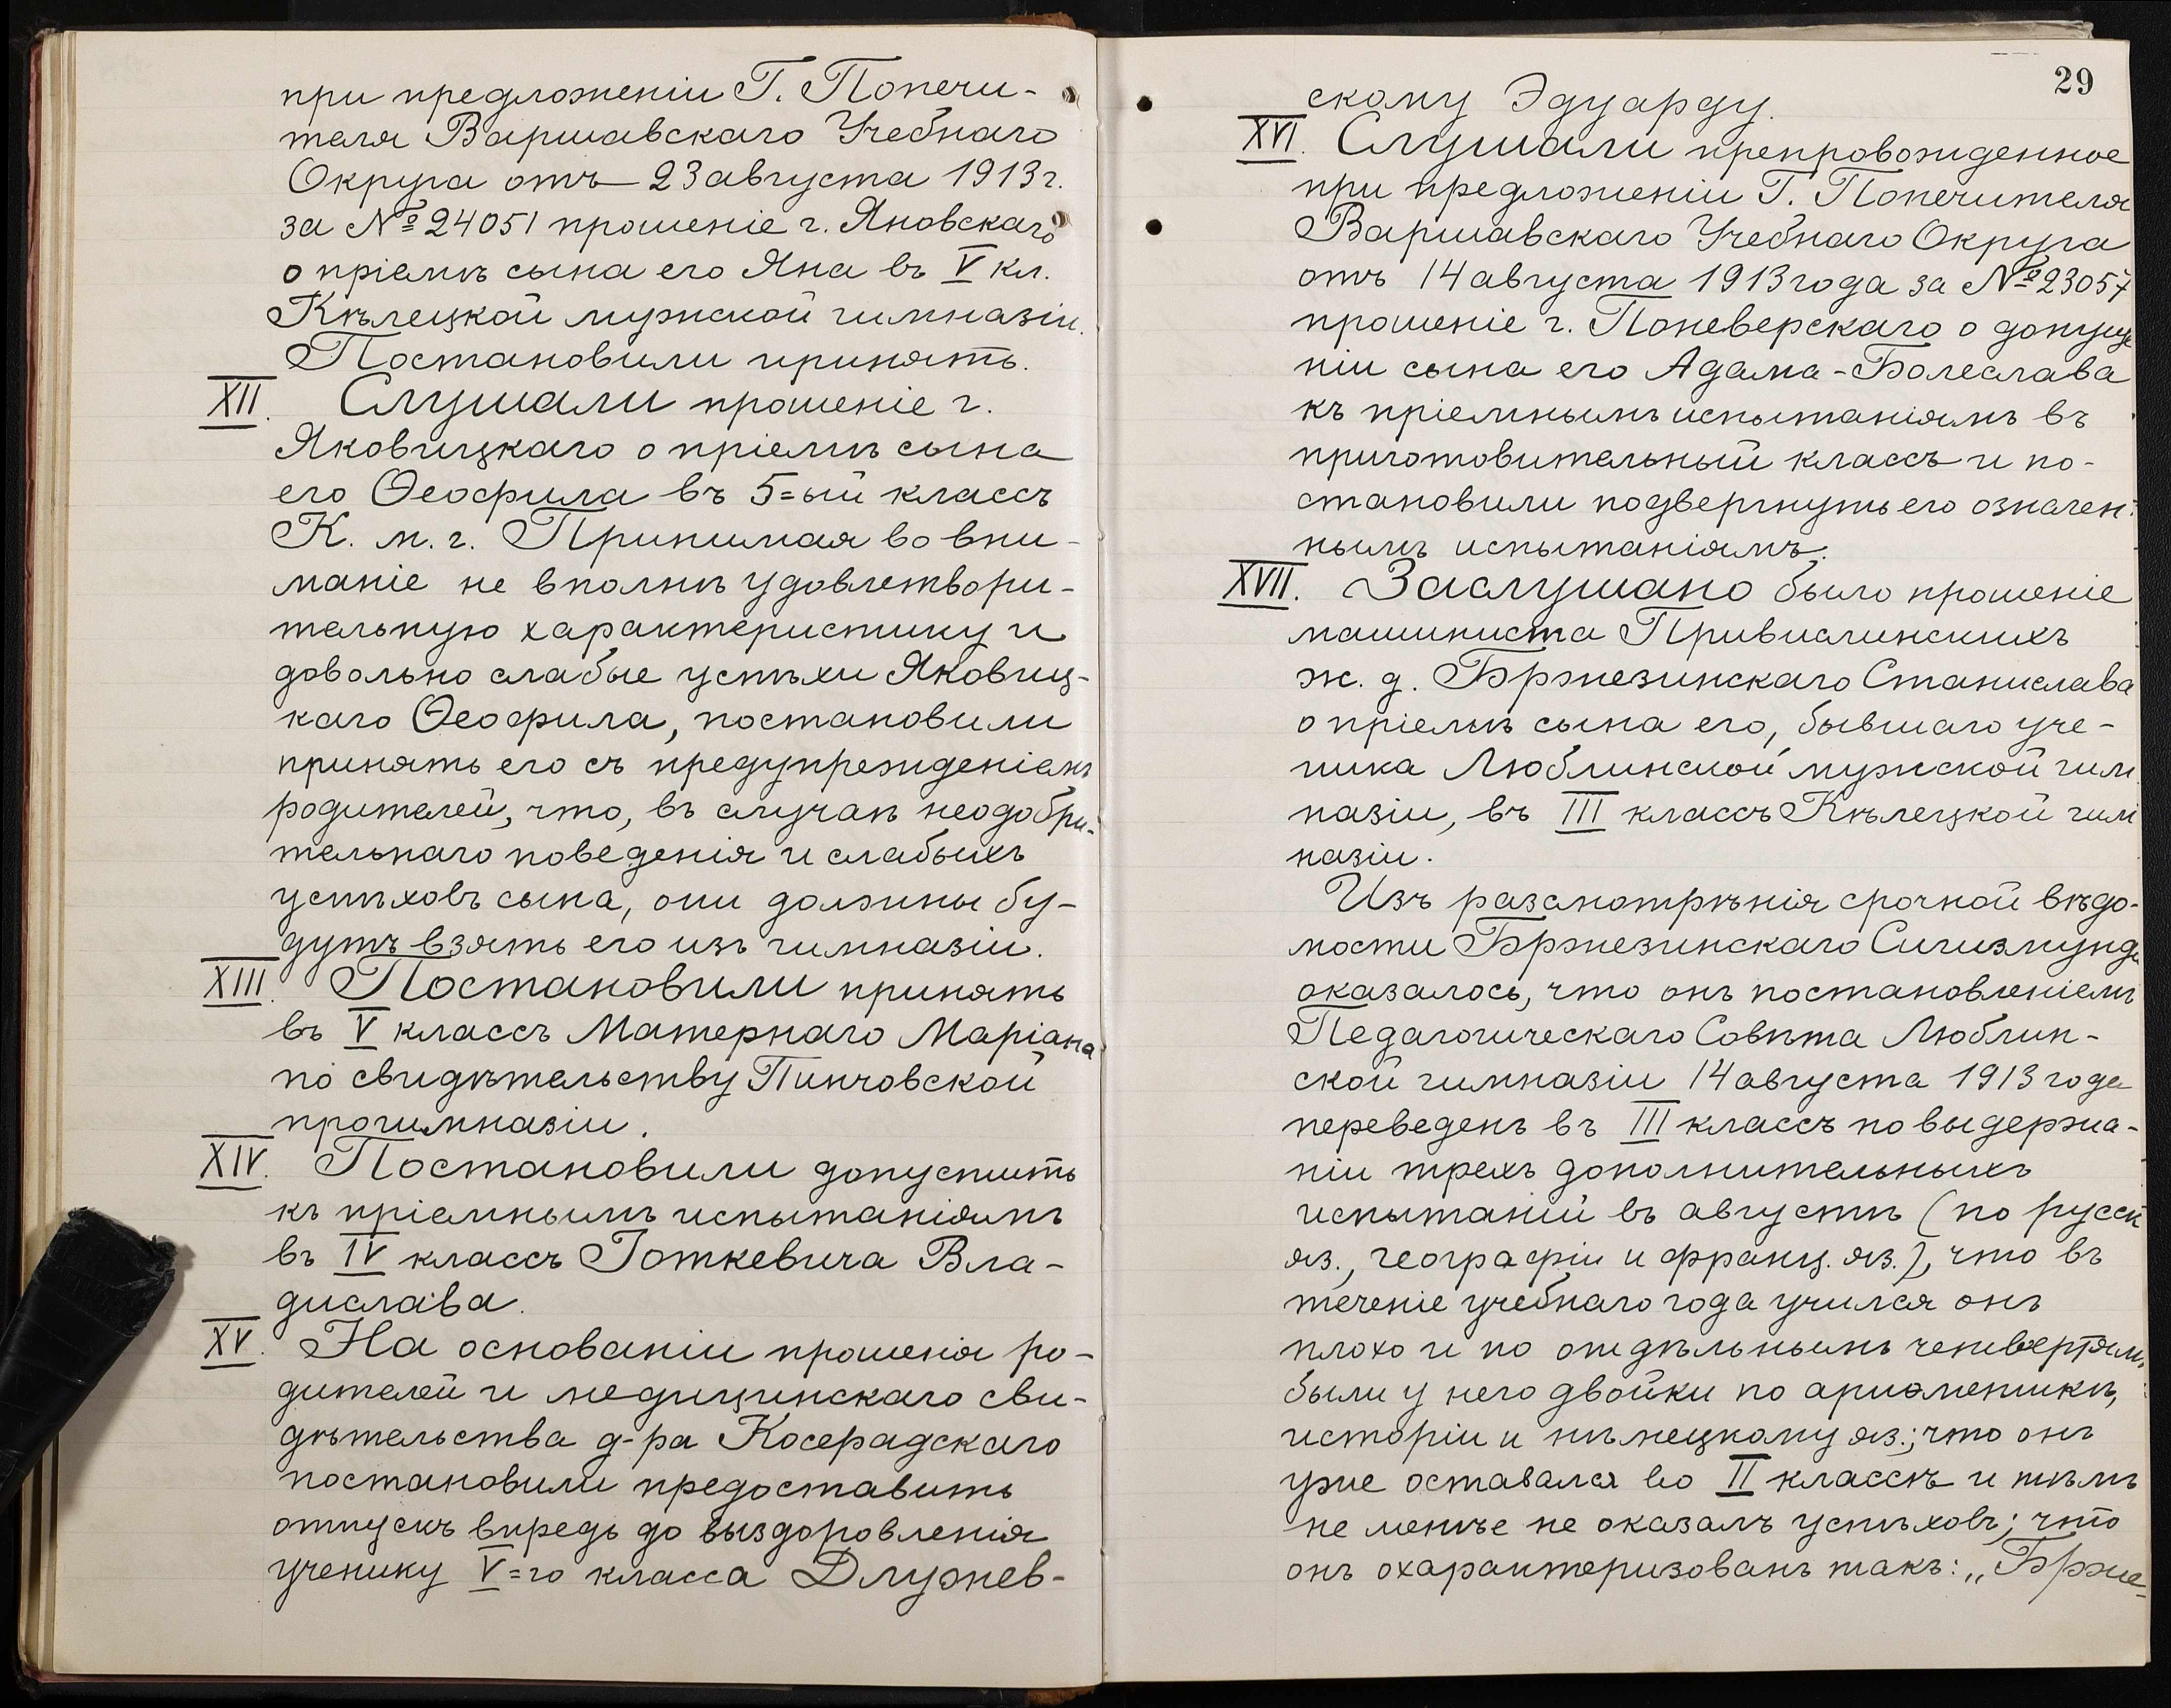 при предложеніи Г. Попечи-
теля Варшавскаго Учебнаго
Округа отъ 23 августа 1913 г.
за № 24051 прошеніе г. Яновскаго
о пріемѣ сына его Яна въ V кл.
Кѣлецкой мужской гимназіи.
Постановили принять.
XII. Слушали прошеніе г.
Яковицкаго о пріемѣ сына
его Ѳеофила въ 5=ый классъ
К. м. г. Принимая во вни-
маніе не вполнѣ удовлетвори-
тельную характеристику и
довольно слабые успѣхи Яковиц-
каго Ѳеофила, постановили
принять его съ предупрежденіемъ
родителей, что, въ случаѣ неодобри-
тельнаго поведенія и слабыхъ
успѣховъ сына, они должны бу-
дутъ взять его изъ гимназіи.
XIII. Постановили принять
въ V классъ Матернаго Маріана
по свидѣтельству Пинчовской
прогимназіи.
XIV. Постановили допустить
къ пріемнымъ испытаніямъ
въ IV классъ Готкевича Вла-
дислава.
XV. На основаніи прошенія ро-
дителей и медицинскаго сви-
дѣтельства д-ра Косерадскаго
постановили предоставить
отпускъ впредь до выздоровленія
ученику V=го класса Длужнев-
29
скому Эдуарду.
XVI. Слушали препровожденное
при предложеніи Г. Попечителя
Варшавскаго Учебнаго Округа
отъ 14 августа 1913 года за № 23057
прошеніе г. Поневерскаго о допуще
ніи сына его Адама-Болеслава
къ пріемнымъ испытаніямъ въ
приготовительный классъ и по-
становили подвергнуть его означен-
нымъ испытаніямъ.
XVII. Заслушано было прошеніе
машиниста Привислинскихъ
ж. д. Бржезинскаго Станислава
о пріемѣ сына его, бывшаго уче-
ника Люблинской мужской гим
назіи, въ III классъ Кѣлецкой гим
назіи.
Изъ разсмотрѣнія срочной вѣдо-
мости Бржезинскаго Сигизмунда
оказалось, что онъ постановленіемъ
Педагогическаго Совѣта Люблин-
ской гимназіи 14 августа 1913 года
переведенъ въ III классъ по выдержа-
ніи трехъ дополнительныхъ
испытаній въ августѣ (по русск
яз., географіи и франц. яз.), что въ
теченіе учебнаго года учился онъ
плохо и по отдѣльнымъ четвертямъ
были у него двойки по ариѳметикѣ,
исторіи и нѣмецкому яз.; что онъ
уже оставался во II классѣ и тѣмъ
не менѣе не оказалъ успѣховъ; что
онъ охарактеризованъ такъ: „Брже-